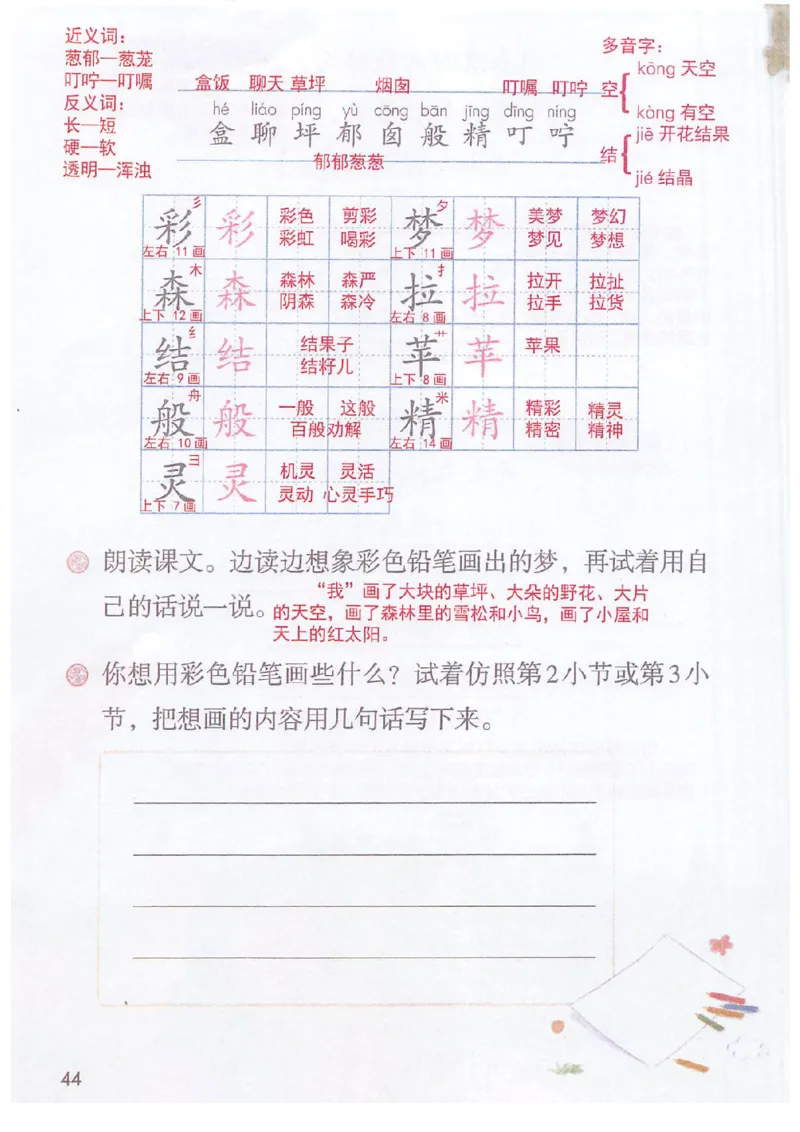 近义词：
葱郁—葱茏
叮咛—叮嘱
反义词：
长—短
硬—软
透明—浑浊
多音字：
空 kōng 天空
kòng 有空
结 jiē 开花结果
jié 结晶
盒饭 聊天 草坪 烟囱 叮嘱 叮咛
hé liáo píng yù cōng bān jīng dīng níng
盒 聊 坪 郁 囱 般 精 叮 咛
郁郁葱葱
彡 夕
彩 彩 彩色 剪彩 梦 梦 美梦 梦幻
彩虹 喝彩 梦见 梦想
左右 11画 上下 11画
木 扌
森 森 森林 森严 拉 拉 拉开 拉扯
阴森 森冷 拉手 拉货
上下 12画 左右 8画
纟 艹
结 结 结果子 苹 苹 苹果
结籽儿
左右 9画 上下 8画
舟 米
般 般 一般 这般 精 精 精彩 精灵
百般劝解 精密 精神
左右 10画 左右 14画
彐
灵 灵 机灵 灵活
灵动 心灵手巧
上下 7画
朗读课文。边读边想象彩色铅笔画出的梦，再试着用自
己的话说一说。
“我”画了大块的草坪、大朵的野花、大片
的天空，画了森林里的雪松和小鸟，画了小屋和
天上的红太阳。
你想用彩色铅笔画些什么？试着仿照第2小节或第3小
节，把想画的内容用几句话写下来。
44